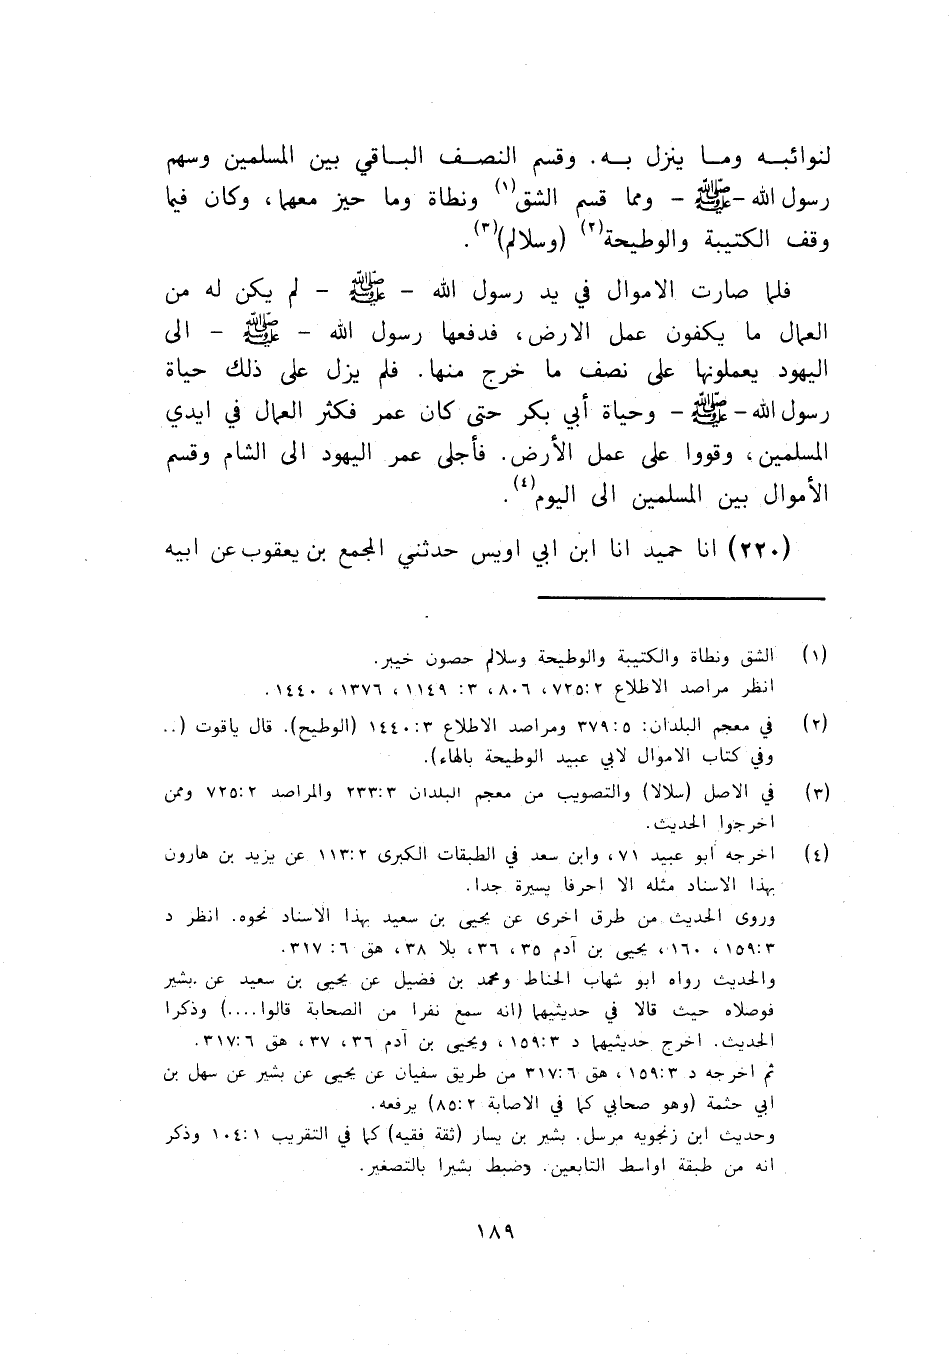 لنوائبه وما ينزل به. وقسم النصف الباقي بين المسلمين وسهم
رسول الله - ﷺ - ومما قسم الشق(١) ونطاة وما حيز معهما، وكان فيما
وقف الكتيبة والوطيحة(٢) (وسلالم)(٣).
فلما صارت الاموال في يد رسول الله - ﷺ - لم يكن له من
العمال ما يكفون عمل الارض، فدفعها رسول الله - ﷺ - الى
اليهود يعملونها على نصف ما خرج منها. فلم يزل على ذلك حياة
رسول الله - ﷺ - وحياة أبي بكر حتى كان عمر فكثر العمال في ايدي
المسلمين، وقووا على عمل الأرض. فأجلى عمر اليهود الى الشام وقسم
الأموال بين المسلمين الى اليوم(٤).
(٢٢٠) انا حميد انا ابن ابي اويس حدثني المجمع بن يعقوب عن ابيه
(١) الشق ونطاة والكتيبة والوطيحة وسلالم حصون خيبر.
انظر مراصد الاطلاع ٢:٧٢٥، ٨٠٦، ٣: ١١٤٩، ١٣٧٦، ١٤٤٠.
(٢) في معجم البلدان: ٥:٣٧٩ ومراصد الاطلاع ٣:١٤٤٠ (الوطيح). قال ياقوت (..
وفي كتاب الاموال لابي عبيد الوطيحة بالهاء).
(٣) في الاصل (سلالا) والتصويب من معجم البلدان ٣:٢٣٣ والمراصد ٢:٧٢٥ وممن
اخرجوا الحديث.
(٤) اخرجه ابو عبيد ٧١، وابن سعد في الطبقات الكبرى ٢:١١٣ عن يزيد بن هارون
بهذا الاسناد مثله الا احرفا يسيرة جدا.
وروى الحديث من طرق اخرى عن يحيى بن سعيد بهذا الاسناد نحوه. انظر د
٣:١٥٩، ١٦٠، يحيى بن آدم ٣٥، ٣٦، بلا ٣٨، هق ٦: ٣١٧.
والحديث رواه ابو شهاب الحناط ومحمد بن فضيل عن يحيى بن سعيد عن بشير
فوصلاه حيث قالا في حديثيهما (انه سمع نفرا من الصحابة قالوا....) وذكرا
الحديث. اخرج حديثيهما د ٣:١٥٩، ويحيى بن آدم ٣٦، ٣٧، هق ٦:٣١٧.
ثم اخرجه د ٣:١٥٩، هق ٦:٣١٧ من طريق سفيان عن يحيى عن بشير عن سهل بن
ابي حثمة (وهو صحابي كما في الاصابة ٢:٨٥) يرفعه.
وحديث ابن زنجويه مرسل. بشير بن يسار (ثقة فقيه) كما في التقريب ١:١٠٤ وذكر
انه من طبقة اواسط التابعين. وضبط بشيرا بالتصغير.
١٨٩